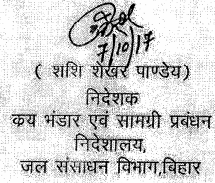 7/10/17
( शशि शेखर पाण्डेय)
निदेशक
कय भंडार एवं सामग्री प्रबंधन
निदेशालय,
जल संसाधन विभाग,बिहार